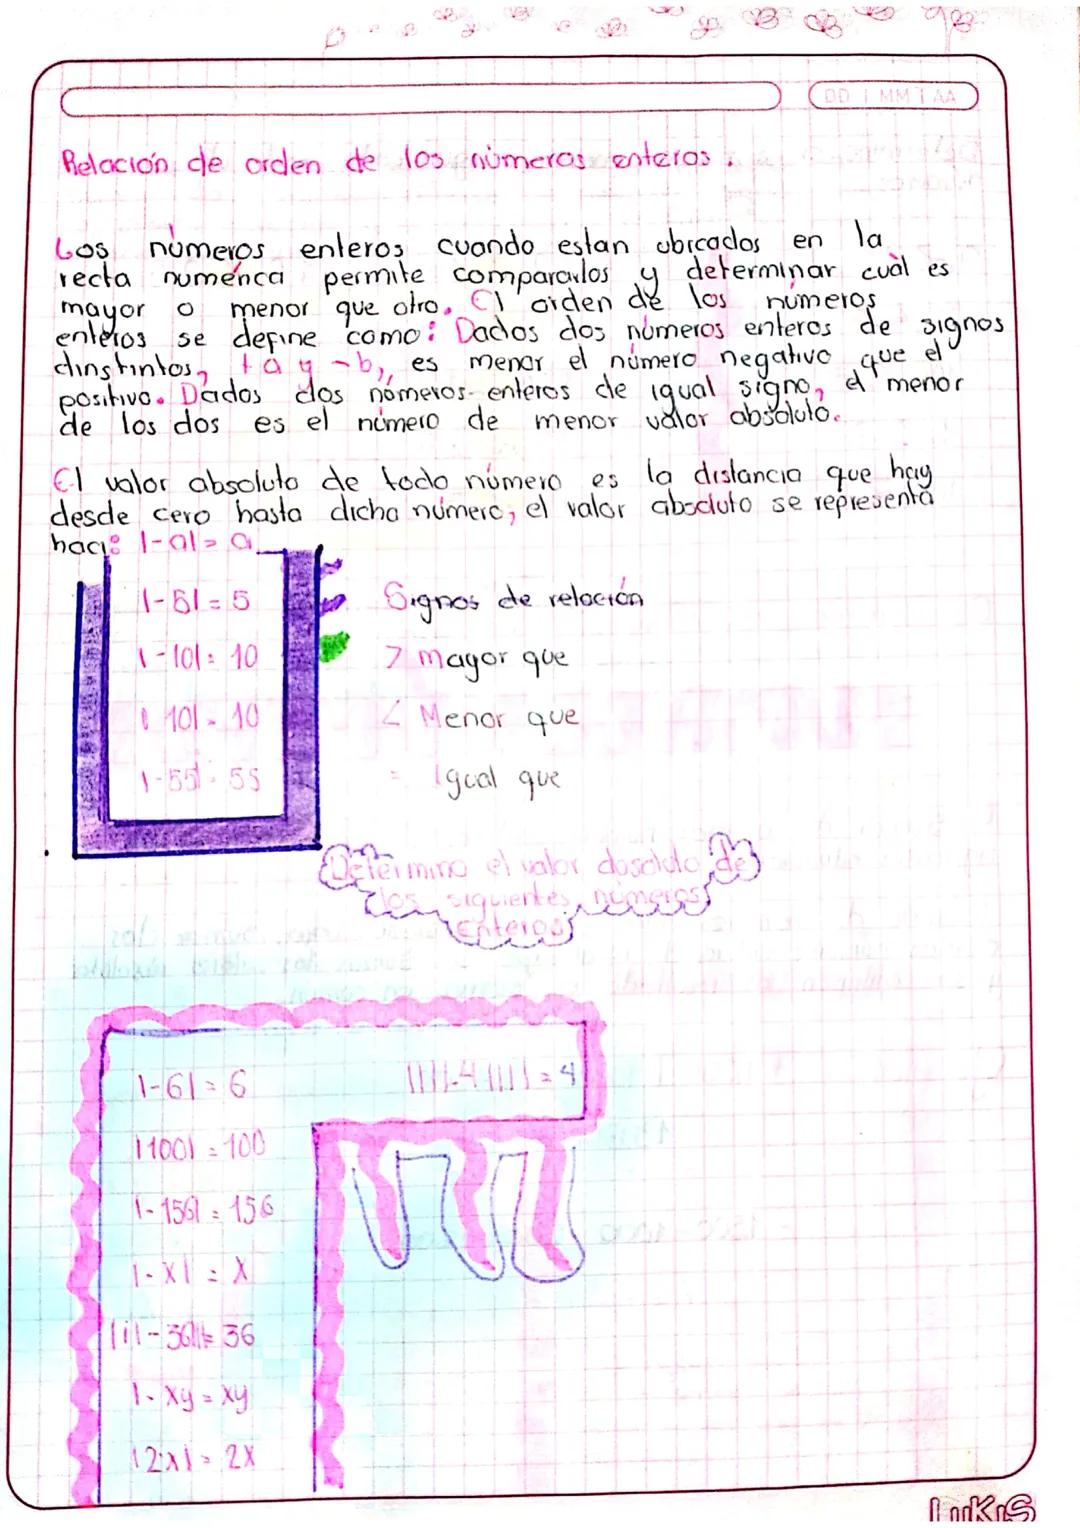 DD | MM | AA
Relación de orden de los números enteros
Los números enteros cuando estan ubicados en la
recta numérica permite compararlos y determinar cuàl es
mayor o menor que otro. El orden de los números
enteros se define como: Dados dos números enteros de signos
dinstintos, +a y -b, es menor el número negativo que el
positivo. Dados dos números enteros de igual signo, el menor
de los dos es el número de menor valor absoluto.
El valor absoluto de todo número es la distancia que hay
desde cero hasta dicho número, el valor absoluto se representa
haci: |-a| = a
|-5| = 5
Signos de relación
|-10| = 10
> mayor que
|10| = 10
< Menor que
|-55| = 55
= Igual que
Determino el valor de
los siguientes números
Enteros
|-6| = 6
||||-4|||| = 4
|100| = 100
|-156| = 156
|-x| = x
|-36|| = 36
|-xy = xy
|2x| = 2x
LuKas